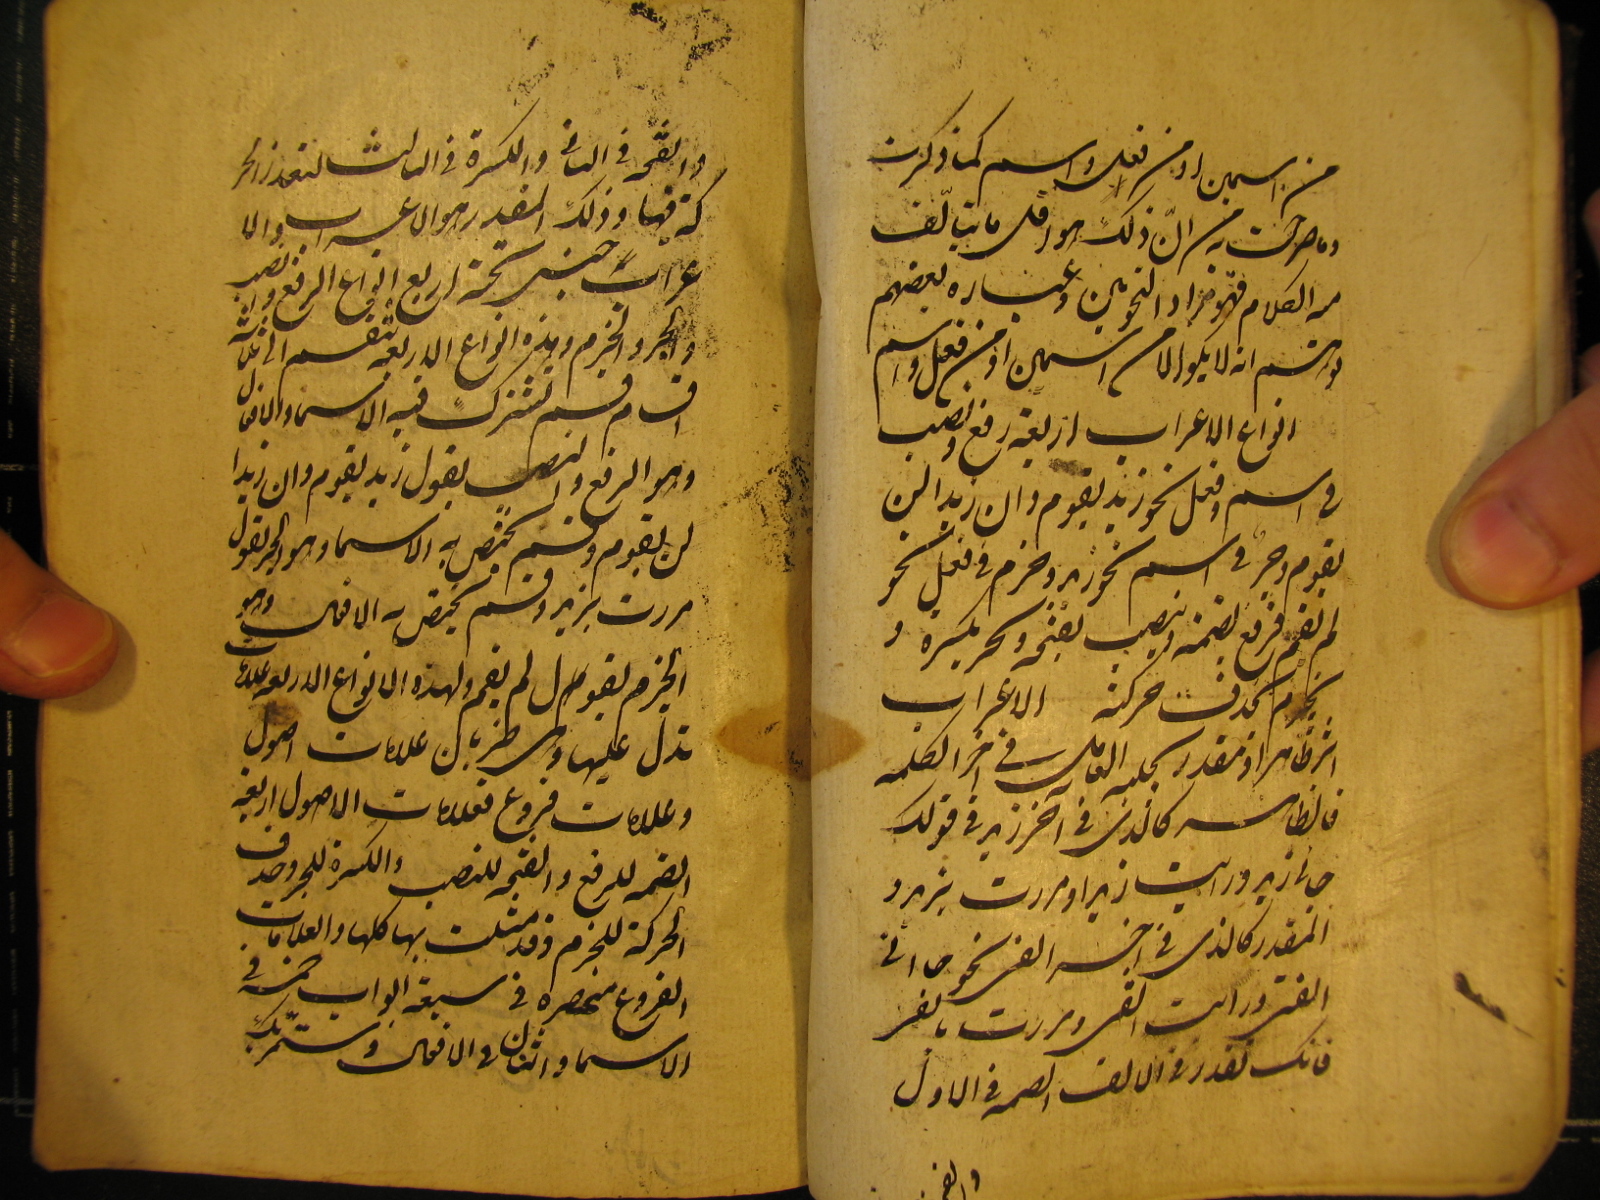 من اسمين او من فعل واسم كما ذكرت
وما صرحت به من انّ ذلك هو اقل ما يتألف
منه الكلام فهو مراد النحويين وعباره بعضهم
توهم انه لا يكون الا من اسمين او من فعل واسم
انواع الاعراب اربعة رفع ونصب
في اسم وفعل نحو زيد يقوم وان زيدا لن
يقوم وجر في اسم نحو بزيد وجزم في فعل نحو
لم يقم فرفع بضمة ونصب بفتحه وجر بكسره و
جزم بحذف حركته الاعراب
اثر ظاهر او مقدر يجلبه العامل في آخر الكلمه
فالظاهر كالذى في آخر زيد في قولك
جانى زيد ورايت زيدا ومررت بزيد و
المقدر كالذى في اخر الفتى نحو جاانى
الفتى ورايت الفتى ومررت بالفتى
فانك تقدر في الالف الضمه في الاول
والفتحه
والفتحه في الثانى والكسرة في الثالث لتعذر الحر
كة فيها وذلك المقدر هو الاعراب والا
عراب جنس تحته اربع انواع الرفع والنصب
والجر والجزم وهذه الانواع الاربعه تنقسم الى ثلاثة
اقسام قسم تشترك فيه الاسما والافعال
وهو الرفع والنصب تقول زيد يقوم وان زيدا
لن يقوم وقسم يختص به الاسما وهو الجر تقول
مررت بزيد وقسم يختص به الافعال وهو
الجزم تقول لم يقم ولهذه الانواع الاربعه علامات
تدل عليها وهى ضربان علامات اصول
وعلامات فروع فعلامات الاصول اربعة
الضمه للرفع والفتحه للنصب والكسرة للجر وحذف
الحركة للجزم وقد مثلت بها كلها والعلامات
الفروع منحصره في سبعة ابواب خمسة في
الاسما واثنان في الافعال وستمر بك